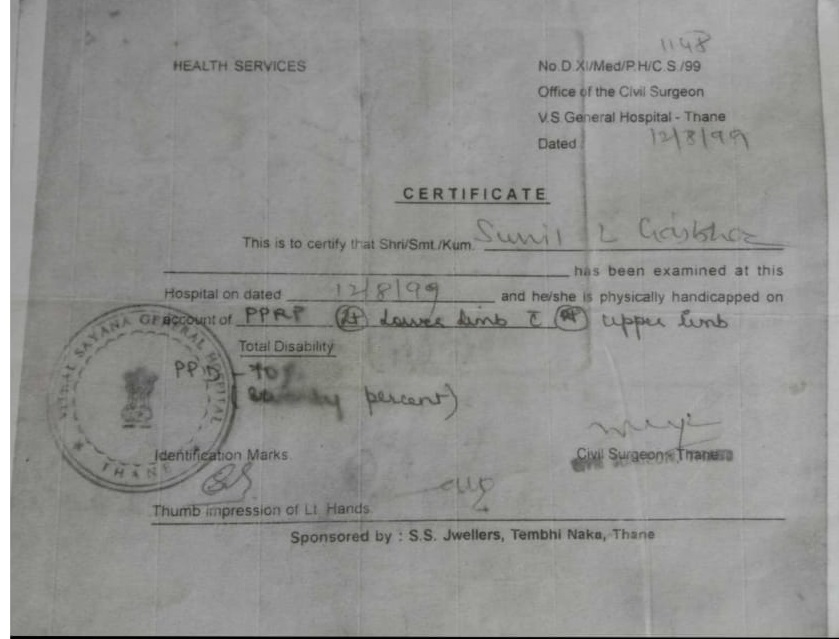 1148
HEALTH SERVICES
No.D.XI/Med/P.H/C.S./99
Office of the Civil Surgeon
V.S General Hospital - Thane
Dated 12/8/99
CERTIFICATE
This is to certify that Shri/Smt./Kum. Sunil L
has been examined at this
Hospital on dated 12/8/99 and he/she is physically handicapped on
account of PPRP Lower limb c̄ upper limb
Total Disability
PPD - 70%
percent)
VITHAL SAYANA GENERAL HOSPITAL
THANE
Identification Marks.
Civil Surgeon, Thane
Thumb impression of Lt. Hands.
Sponsored by : S.S. Jwellers, Tembhi Naka, Thane